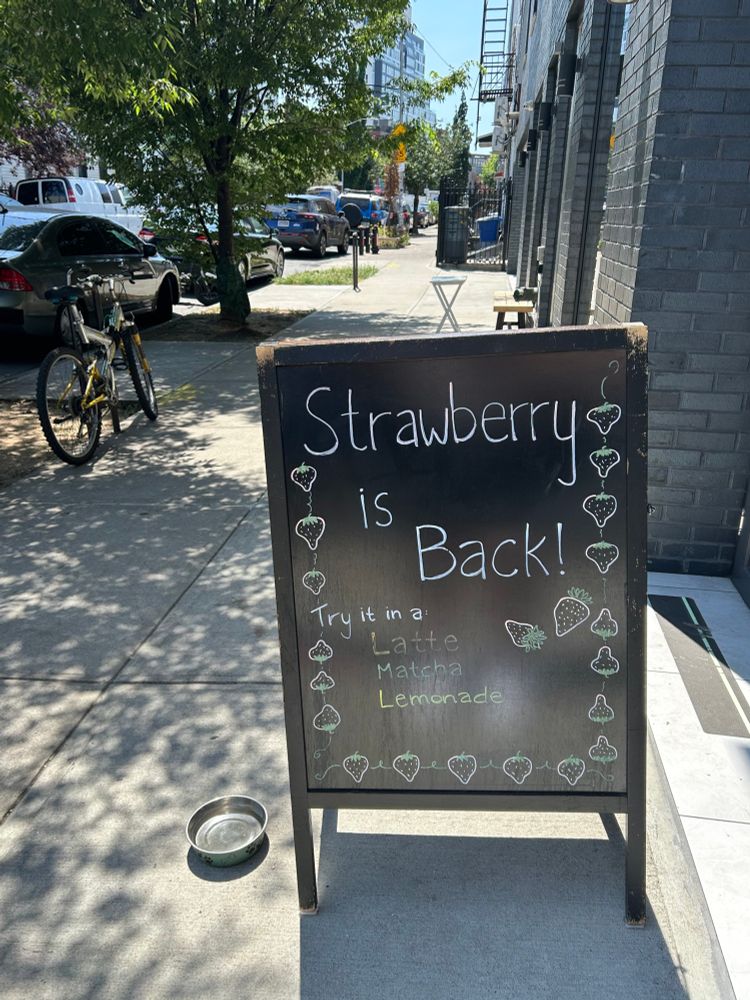 Strawberry
is
Back!
Try it in a:
Latte
Matcha
Lemonade